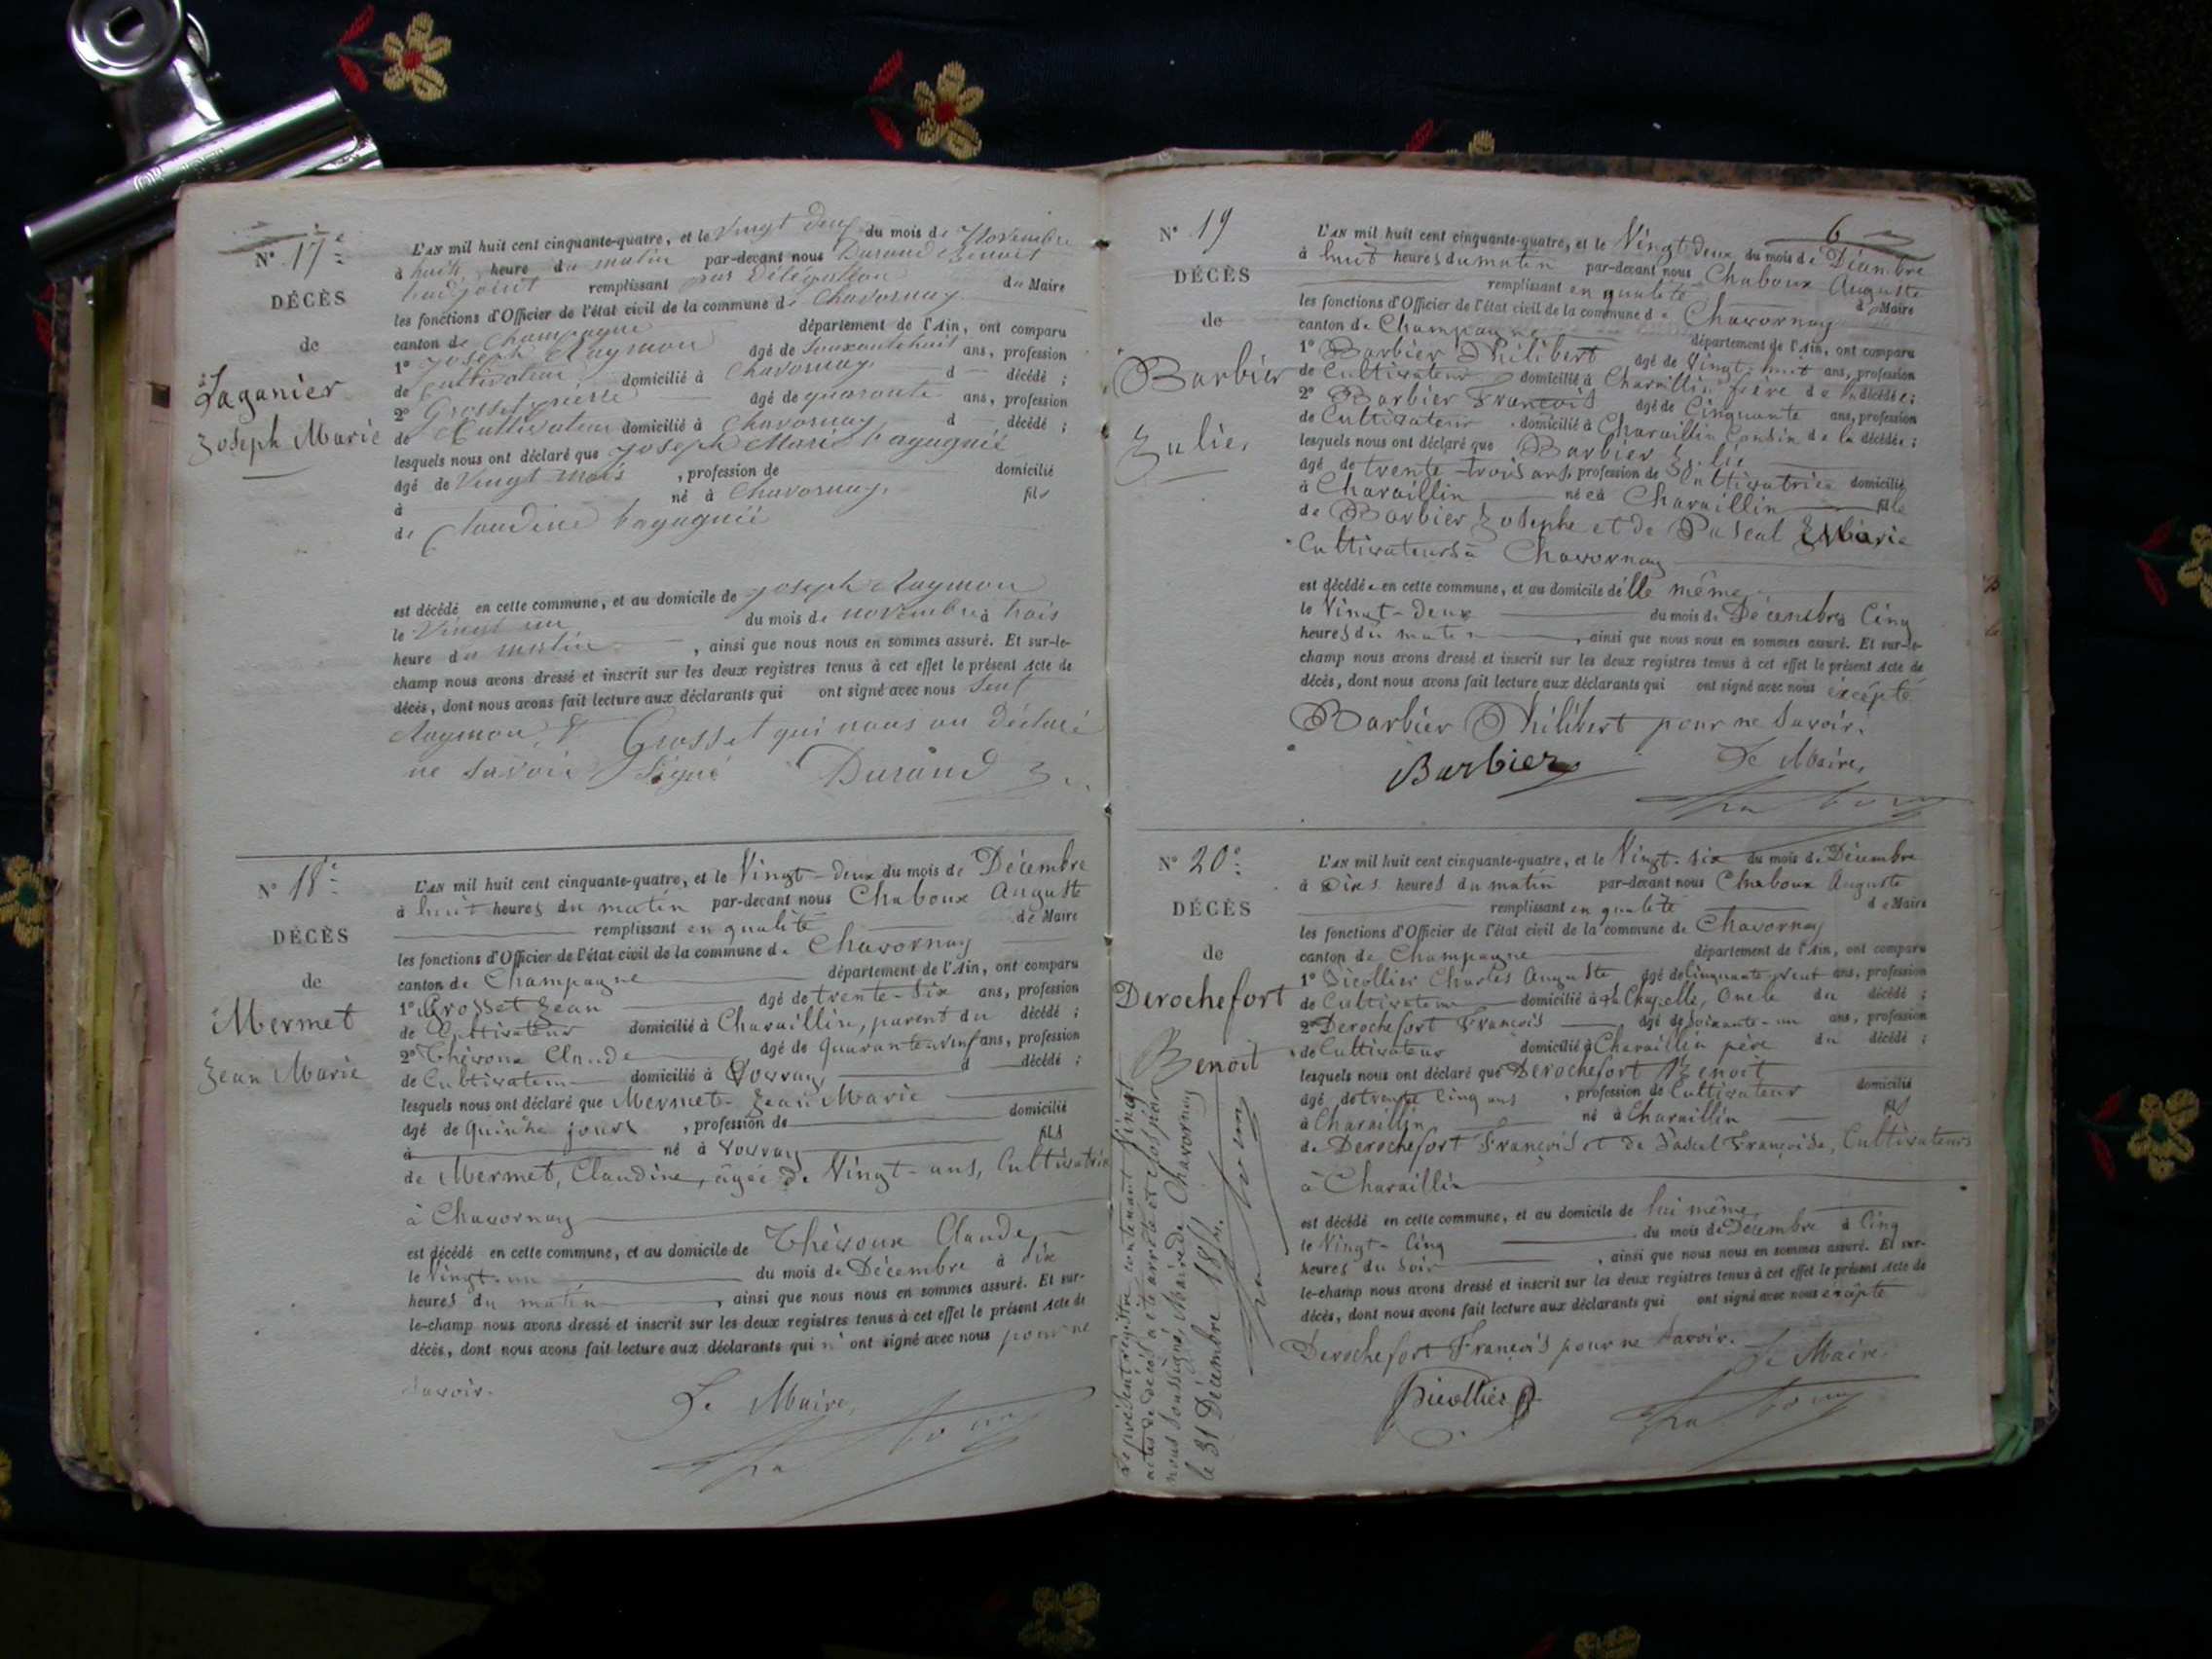 N° 17e
DÉCÈS
de
Laganier
Joseph Marie
L'AN mil huit cent cinquante-quatre, et le vingt deux du mois de Novembre
à huit heure du matin par-devant nous Durand Benoit
remplissant par délégation du Maire
les fonctions d'Officier de l'état civil de la commune de Chavornay
canton de Champagne département de l'Ain, ont comparu
1° Joseph Raymon âgé de ans, profession
de Cultivateur domicilié à Chavornay d décédé ;
2° Grosset pierre âgé de quarante ans, profession
de Cultivateur domicilié à Chavornay d décédé ;
lesquels nous ont déclaré que Joseph Marie
âgé de Vingt mois , profession de domicilié
à né à Chavornay, fils
de Claudine
est décédé en cette commune, et au domicile de joseph Raymon
le Vingt un du mois de novembre à trois
heure du matin , ainsi que nous nous en sommes assuré. Et sur-le-
champ nous avons dressé et inscrit sur les deux registres tenus à cet effet le présent Acte de
décès, dont nous avons fait lecture aux déclarants qui ont signé avec nous
Raymon & Grosset qui nous on déclaré
ne savoir signé Durand
N° 18e
DÉCÈS
de
Mermet
Jean Marie
L'AN mil huit cent cinquante-quatre, et le Vingt-deux du mois de Décembre
à huit heures du matin par-devant nous Chaboux Auguste
remplissant en qualité de Maire
les fonctions d'Officier de l'état civil de la commune de Chavornay
canton de Champagne département de l'Ain, ont comparu
1° Grosset Jean âgé de trente-six ans, profession
de Cultivateur domicilié à Charaillin, parent du décédé ;
2° Théroux Claude âgé de Quarante neuf ans, profession
de Cultivateur domicilié à Vovray d décédé ;
lesquels nous ont déclaré que Mermet Jean Marie
âgé de Quinze jours , profession de domicilié
à né à Vovray fils
de Mermet, Claudine, âgée de Vingt-ans, Cultivatrice
à Chavornay
est décédé en cette commune, et au domicile de Théroux Claude,
le Vingt-un du mois de Décembre à dix
heures du matin , ainsi que nous nous en sommes assuré. Et sur-
le-champ nous avons dressé et inscrit sur les deux registres tenus à cet effet le présent Acte de
décès, dont nous avons fait lecture aux déclarants qui n' ont signé avec nous pour ne
savoir.
Le Maire,
Chaboux
6
N° 19
DÉCÈS
de
Barbier
Julie,
L'AN mil huit cent cinquante-quatre, et le Vingt deux du mois de Décembre
à huit heures du matin par-devant nous Chaboux Auguste
remplissant en qualité de Maire
les fonctions d'Officier de l'état civil de la commune de Chavornay
canton de Champagne département de l'Ain, ont comparu
1° Barbier Philibert âgé de Vingt-huit ans, profession
de Cultivateur domicilié à Charaillin frère de la décédée ;
2° Barbier François âgé de Cinquante ans, profession
de Cultivateur domicilié à Charaillin Cousin de la décédée ;
lesquels nous ont déclaré que Barbier Julie
âgé de trente-trois ans, profession de Cultivatrice domicilié
à Charaillin née à Charaillin fille
de Barbier Josephe et de Pascal Marie
Cultivateurs à Chavornay
est décédée en cette commune, et au domicile d'elle même,
le Vingt-deux du mois de Décembre, Cinq
heures du matin , ainsi que nous nous en sommes assuré. Et sur-le-
champ nous avons dressé et inscrit sur les deux registres tenus à cet effet le présent Acte de
décès, dont nous avons fait lecture aux déclarants qui ont signé avec nous excépté
Barbier Philibert pour ne savoir.
Barbier Le Maire,
Chaboux
N° 20e
DÉCÈS
de
Derochefort
Benoit
L'AN mil huit cent cinquante-quatre, et le Vingt-six du mois de Décembre
à dixs heures du matin par-devant nous Chaboux Auguste
remplissant en qualité de Maire
les fonctions d'Officier de l'état civil de la commune de Chavornay
canton de Champagne département de l'Ain, ont comparu
1° Picollier Charles Auguste âgé de Cinquante neuf ans, profession
de Cultivateur domicilié à la Chapelle, Oncle du décédé ;
2° Derochefort François âgé de Soixante-un ans, profession
de Cultivateur domicilié à Charaillin père du décédé ;
lesquels nous ont déclaré que Derochefort Benoit
âgé de trente Cinq ans , profession de Cultivateur domicilié
à Charaillin né à Charaillin fils
de Derochefort François et de Pascal Françoise, Cultivateurs
à Charaillin
est décédé en cette commune, et au domicile de lui même,
le Vingt-Cinq du mois de Décembre à Cinq
heures du soir , ainsi que nous nous en sommes assuré. Et sur-
le-champ nous avons dressé et inscrit sur les deux registres tenus à cet effet le présent Acte de
décès, dont nous avons fait lecture aux déclarants qui ont signé avec nous excépté
Derochefort François pour ne savoir.
Le Maire
Picollier Chaboux
Le présent registre contenant Vingt
actes de décès a été arrêté et clos par
nous soussigné, Maire de Chavornay
le 31 Décembre 1854.
Chaboux